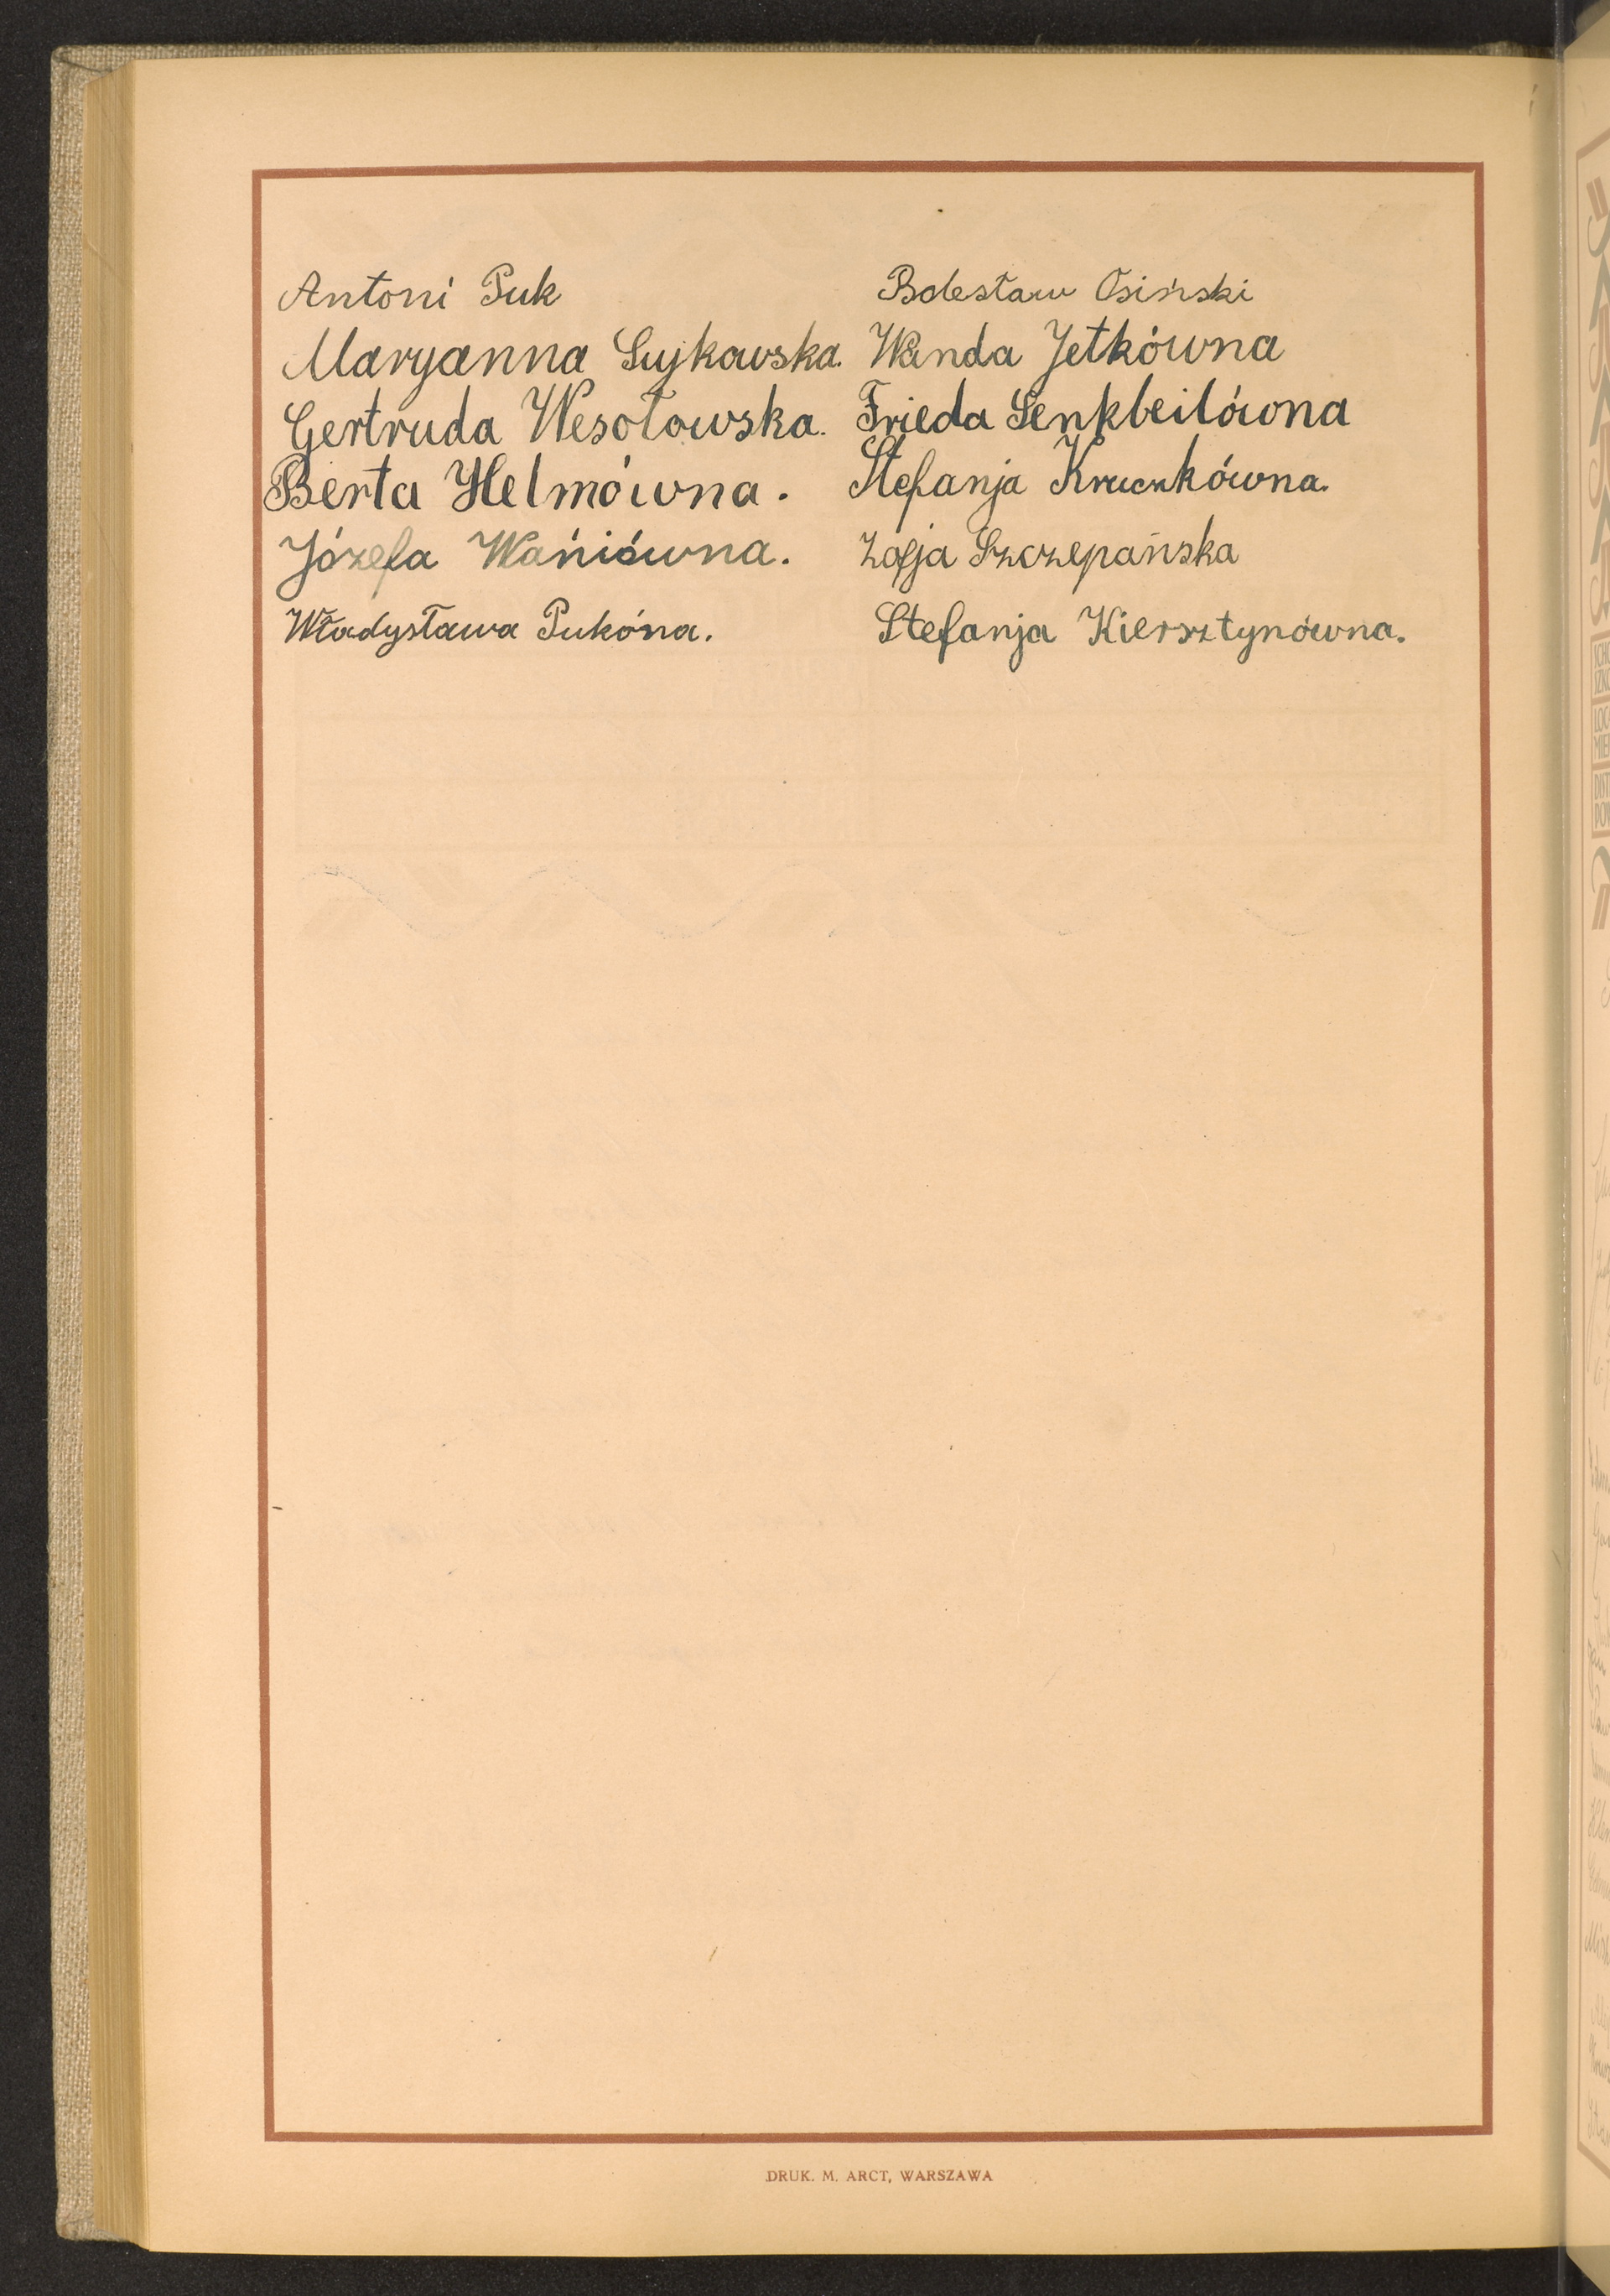 Antoni Puk
Maryanna Sujkowska.
Gertruda Wesołowska.
Berta Helmówna.
Józefa Wańiówna.
Władysława Pukóna.
Bolesław Osiński
Wanda Jetkówna
Frieda Senkbeilówona
Stefanja Kruczkówna.
Zofja Szczepańska
Stefanja Kiersztynówna.
DRUK. M. ARCT, WARSZAWA